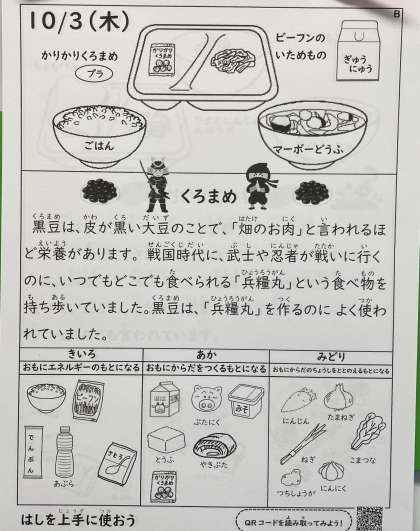 B
10/3(木)
かりかりくろまめ
プラ
かりかり
くろまめ
ビーフンの
いためもの
ぎゅう
にゅう
ごはん
マーボーどうふ
くろまめ
黒豆は、皮が黒い大豆のことで、「畑のお肉」と言われるほ
ど栄養があります。戦国時代に、武士や忍者が戦いに行く
のに、いつでもどこでも食べられる「兵糧丸」という食べ物を
持ち歩いていました。黒豆は、「兵糧丸」を作るのに よく使わ
れていました。
きいろ
おもにエネルギーのもとになる
ビーフン
でんぷん
あぶら
さとう
あか
おもにからだをつくるもとになる
ぶたにく
みそ
とうふ
やきぶた
かりかり
くろまめ
みどり
おもにからだのちょうしをととのえるもとになる
にんじん
たまねぎ
ねぎ
こまつな
つちしょうが
にんにく
はしを上手に使おう
QRコードを読み取ってみよう!